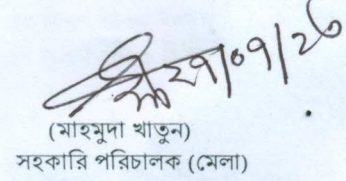 ২৭/০৭/২৩
(মাহমুদা খাতুন)
সহকারি পরিচালক (মেলা)